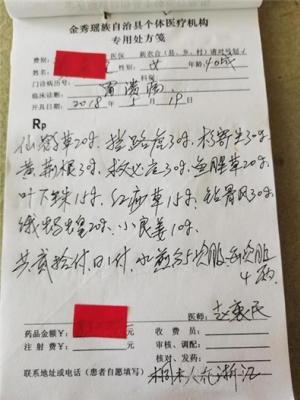 金秀瑶族自治县个体医疗机构
专用处方笺
费别: 医保 新农合(县、乡、村)请对号划√
姓名: 性别: 女 年龄: 40岁
门诊病历号: 科别:
临床诊断: 胃溃疡
开具日期: 2018年5月19日
Rp
仙鹤草20g、拦路虎30g、杉寄生30g
黄荆根30g、救必应30g、鱼腥草20g
叶下珠15g、红痢草15g、钻骨风30g
饿蚂蝗20g、小良姜10g
共贰拾付、日1付、水煎分5次服、每次服
4两
医师: 赵襄民
药品金额¥: 元 收费员:
注射费¥: 元 审核、调配:
核对、发药:
联系地址或电话(患者自愿填写)